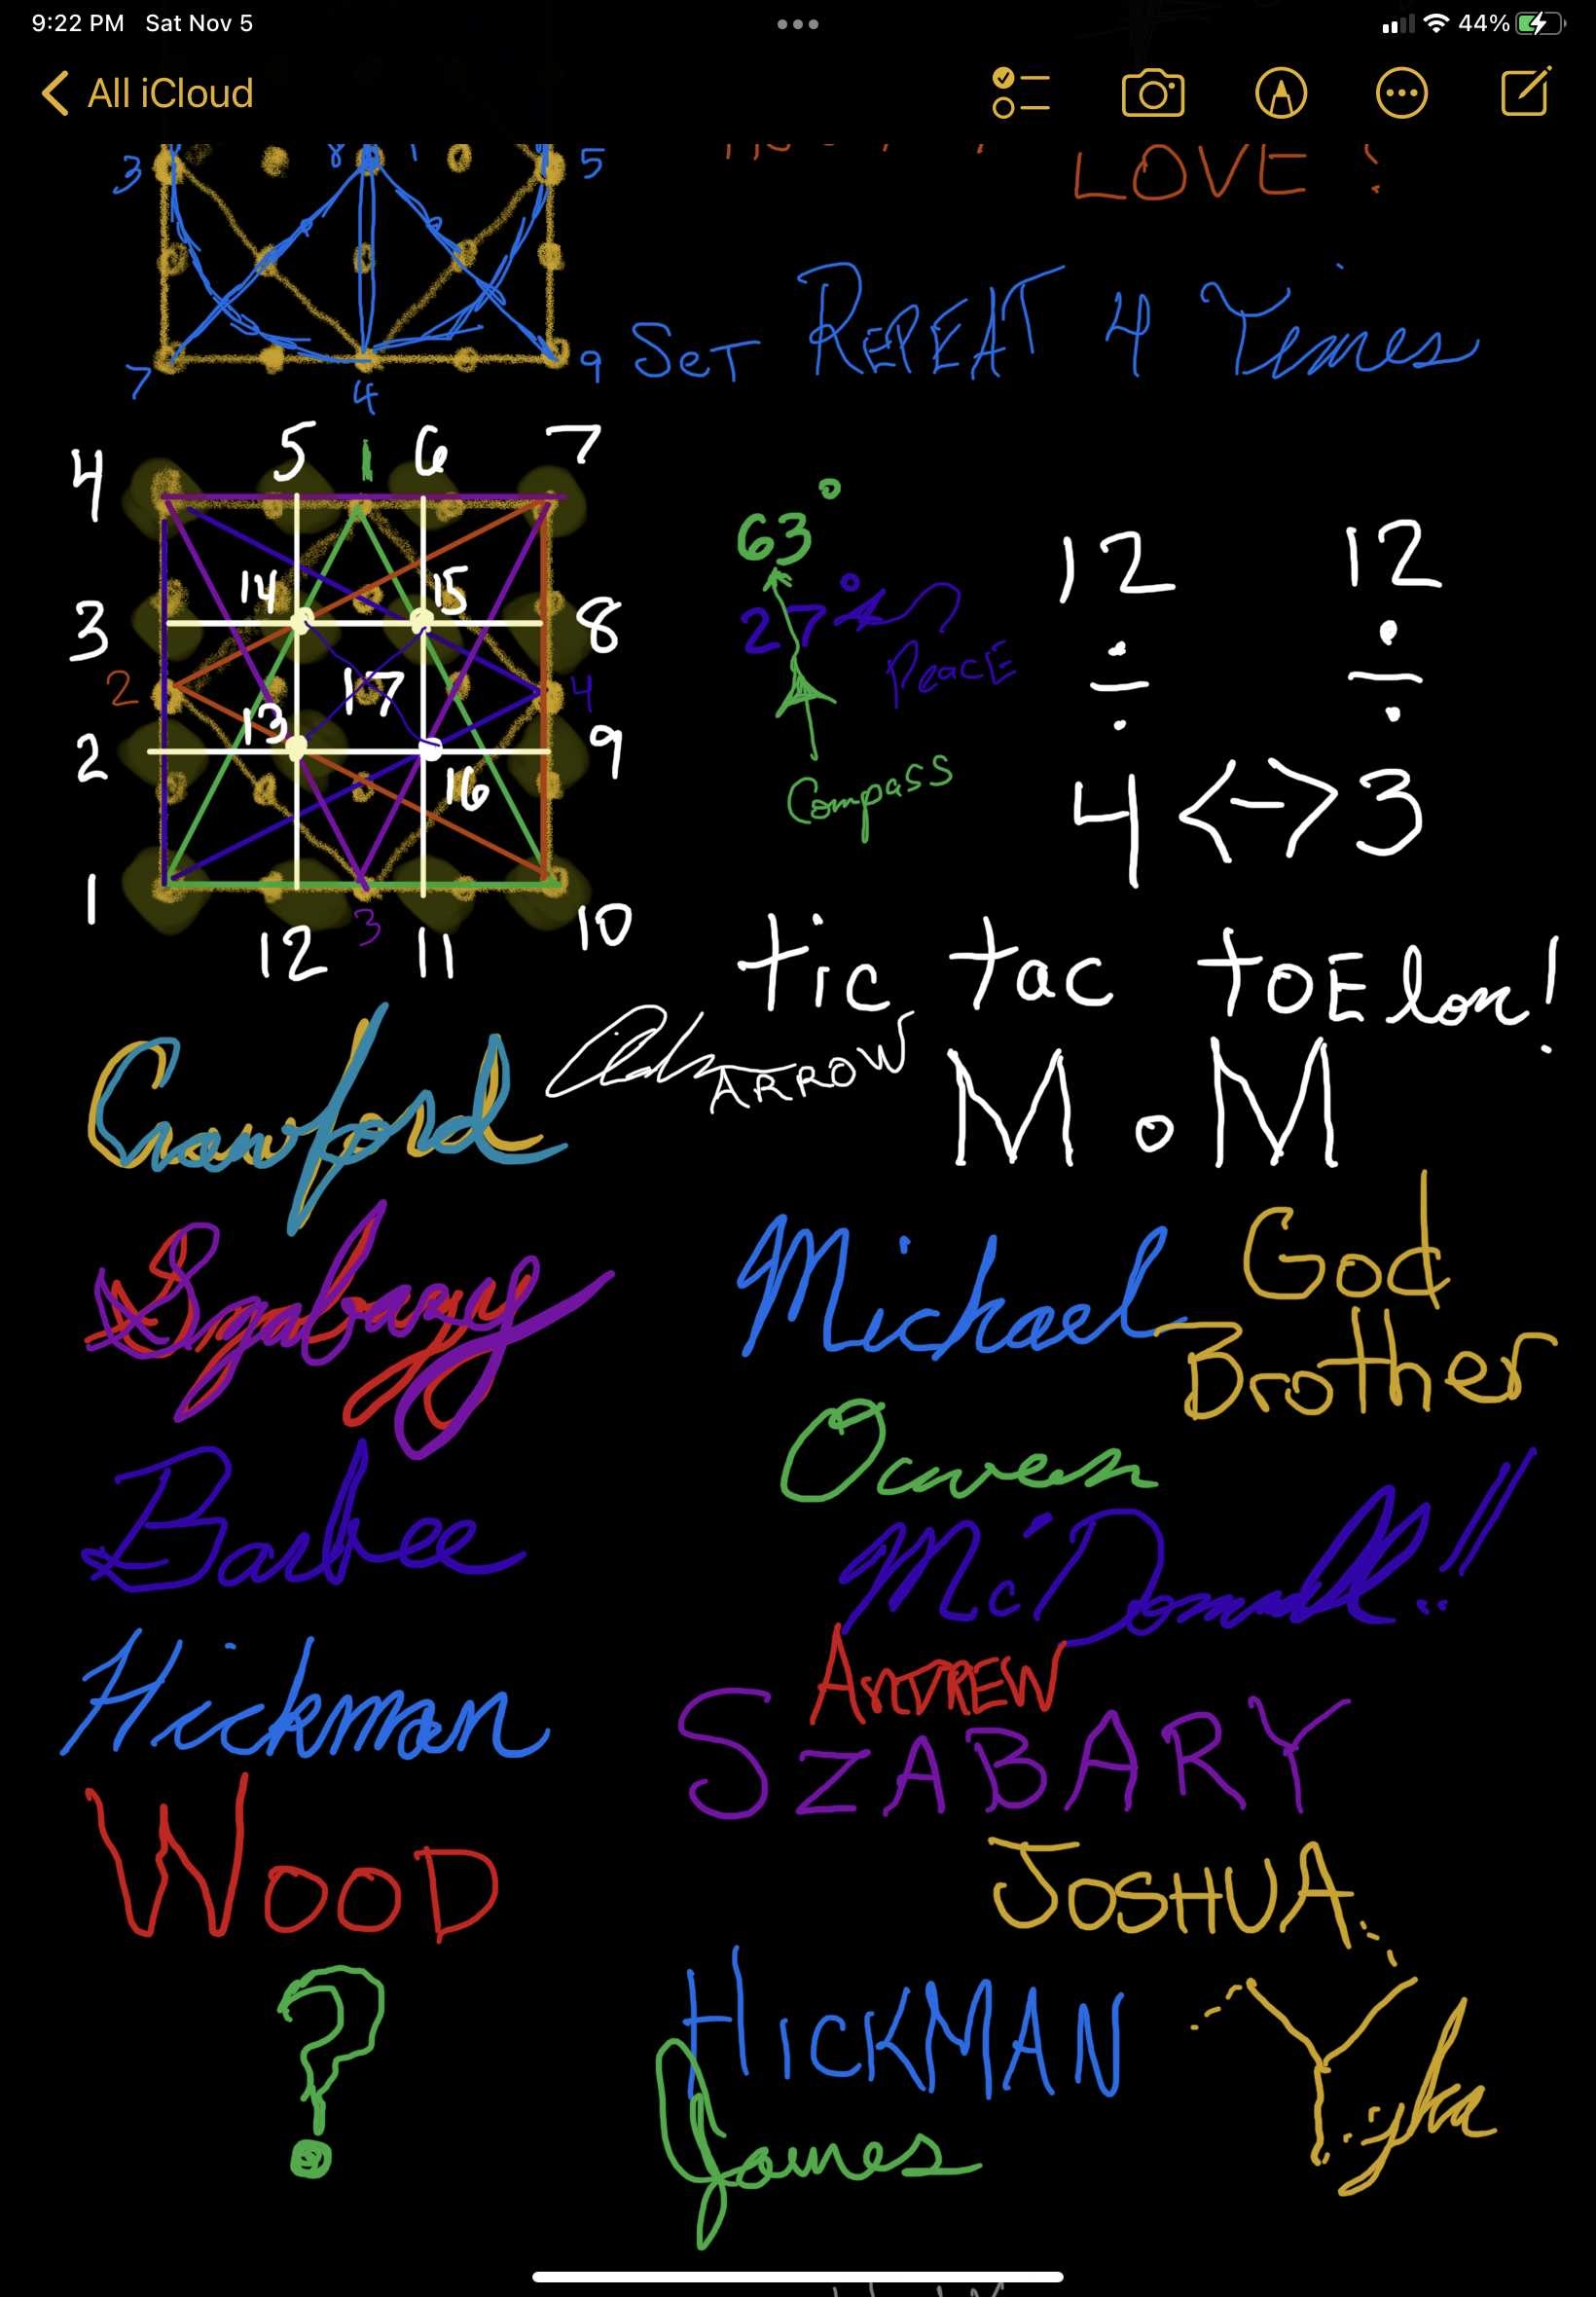 9:22 PM Sat Nov 5
44%
All iCloud
LOVE
3 8 1 5
7 4 9
SeT REPEAT 4 Times
4 5 1 6 7
14 15
3 8
2 17 4
13
2 9
16
1 10
12 3 11
63°
27°
PeacE
Compass
12 12
÷ ÷
4 <-> 3
tic tac toE lon!
ARROW
M.M
Crawford
Szabary
Barbee
Hickman
WOOD
?
Michael God
Brother
Owen
McDonald!!
ANDREW
SZABARY
JOSHUA
HICKMAN
James